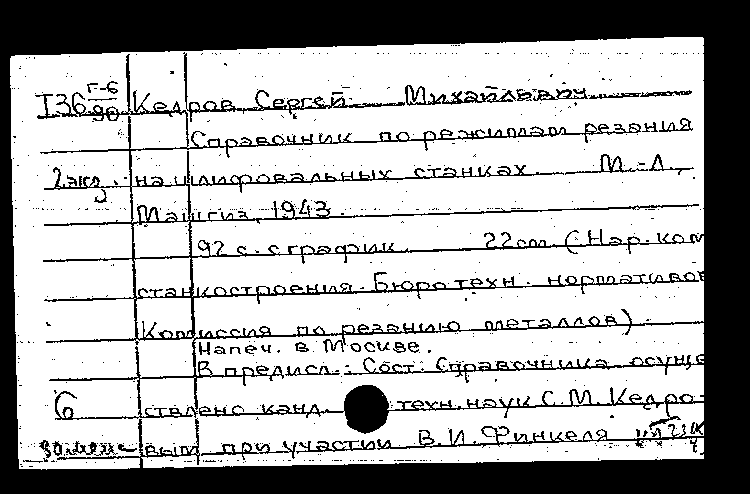 I36 Г-6/90 Кедров, Сергей Михайлович
Справочник по режимам резания
2 экз. на шлифовальных станках. М.-Л.,
Машгиз, 1943.
92 с. с график. 22 см (Нар. ком
станкостроения. Бюро техн. нормативов
Комиссия по резанию металлов)
Напеч. в Москве.
В предисл.: Сост. Справочника осуще
6 ствлено канд. техн. наук С.М. Кедро-
вым при участии В.И. Финкеля